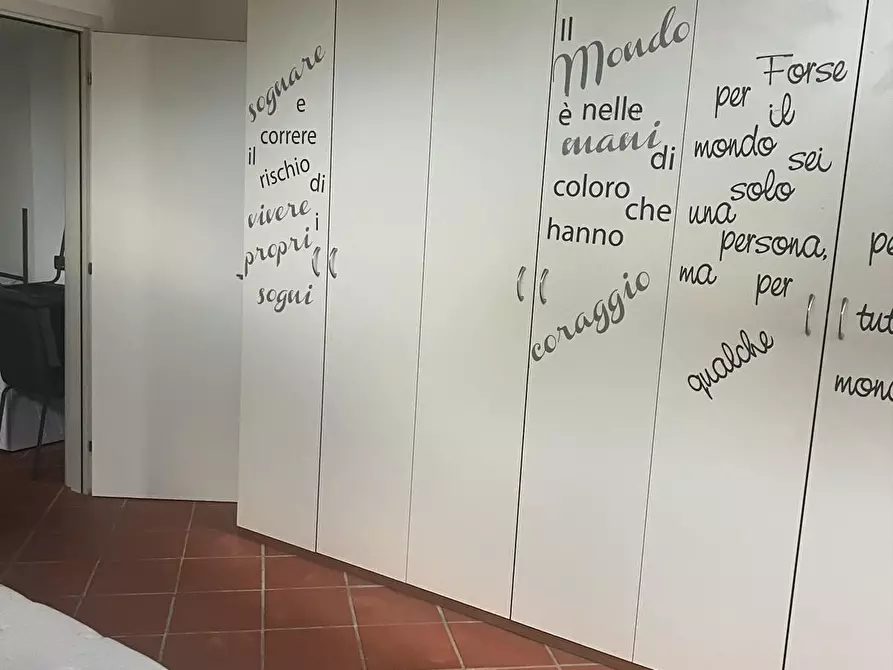 sognare
e
correre
il
rischio
di
vivere
i
propri
sogni
Il
Mondo
è nelle
mani
di
coloro
che
hanno
coraggio
Forse
per
il
mondo
sei
solo
una
persona,
ma
per
qualche